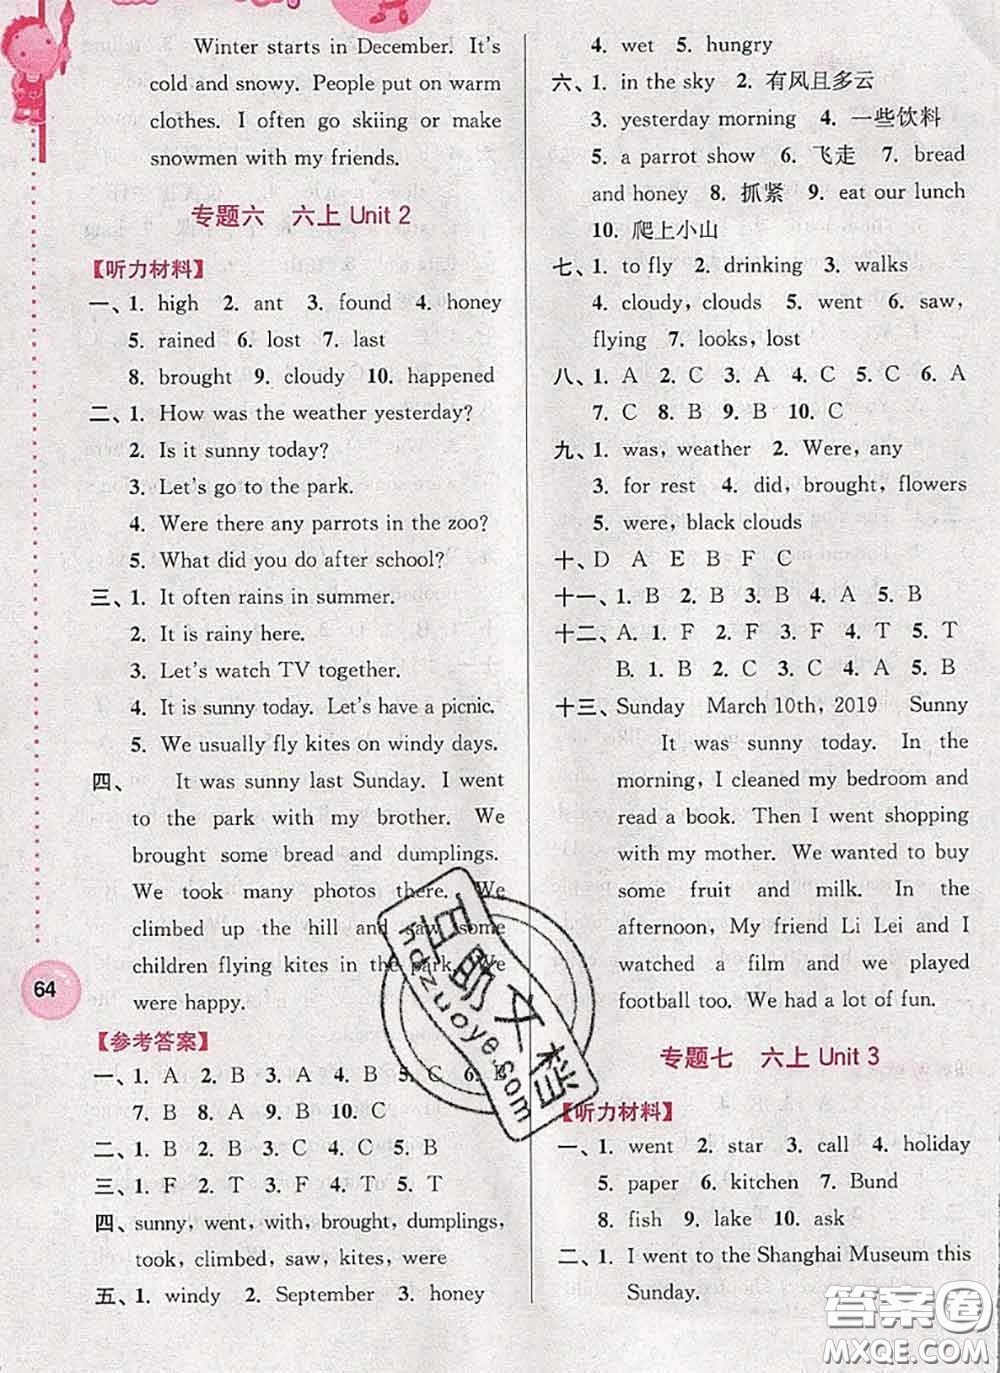 Winter starts in December. It's
cold and snowy. People put on warm
clothes. I often go skiing or make
snowmen with my friends.
专题六 六上 Unit 2
【听力材料】
一、1. high 2. ant 3. found 4. honey
5. rained 6. lost 7. last
8. brought 9. cloudy 10. happened
二、1. How was the weather yesterday?
2. Is it sunny today?
3. Let's go to the park.
4. Were there any parrots in the zoo?
5. What did you do after school?
三、1. It often rains in summer.
2. It is rainy here.
3. Let's watch TV together.
4. It is sunny today. Let's have a picnic.
5. We usually fly kites on windy days.
四、 It was sunny last Sunday. I went
to the park with my brother. We
brought some bread and dumplings.
We took many photos there. We
climbed up the hill and saw some
children flying kites in the park. We
were happy.
64
【参考答案】
一、1. A 2. B 3. A 4. B 5. C 6. B
7. B 8. A 9. B 10. C
二、1. B 2. B 3. C 4. C 5. B
三、1. F 2. T 3. F 4. T 5. T
四、sunny, went, with, brought, dumplings,
took, climbed, saw, kites, were
五、1. windy 2. September 3. honey
4. wet 5. hungry
六、1. in the sky 2. 有风且多云
3. yesterday morning 4. 一些饮料
5. a parrot show 6. 飞走 7. bread
and honey 8. 抓紧 9. eat our lunch
10. 爬上小山
七、1. to fly 2. drinking 3. walks
4. cloudy, clouds 5. went 6. saw,
flying 7. looks, lost
八、1. A 2. C 3. A 4. C 5. C 6. A
7. C 8. B 9. B 10. C
九、1. was, weather 2. Were, any
3. for rest 4. did, brought, flowers
5. were, black clouds
十、D A E B F C
十一、1. B 2. B 3. B 4. A 5. B
十二、A. 1. F 2. F 3. F 4. T 5. T
B. 1. B 2. C 3. C 4. A 5. B
十三、Sunday March 10th, 2019 Sunny
It was sunny today. In the
morning, I cleaned my bedroom and
read a book. Then I went shopping
with my mother. We wanted to buy
some fruit and milk. In the
afternoon, My friend Li Lei and I
watched a film and we played
football too. We had a lot of fun.
专题七 六上 Unit 3
【听力材料】
一、1. went 2. star 3. call 4. holiday
5. paper 6. kitchen 7. Bund
8. fish 9. lake 10. ask
二、1. I went to the Shanghai Museum this
Sunday.
互助文档
hdzuoye.com
答案圈
MXQE.COM